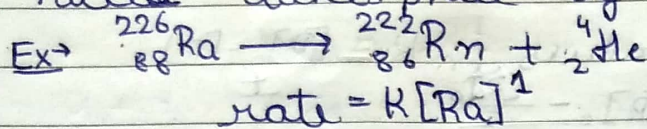 Ex→ ²²⁶₈₈Ra ⟶ ²²²₈₆Rn + ⁴₂He
rate = K[Ra]¹